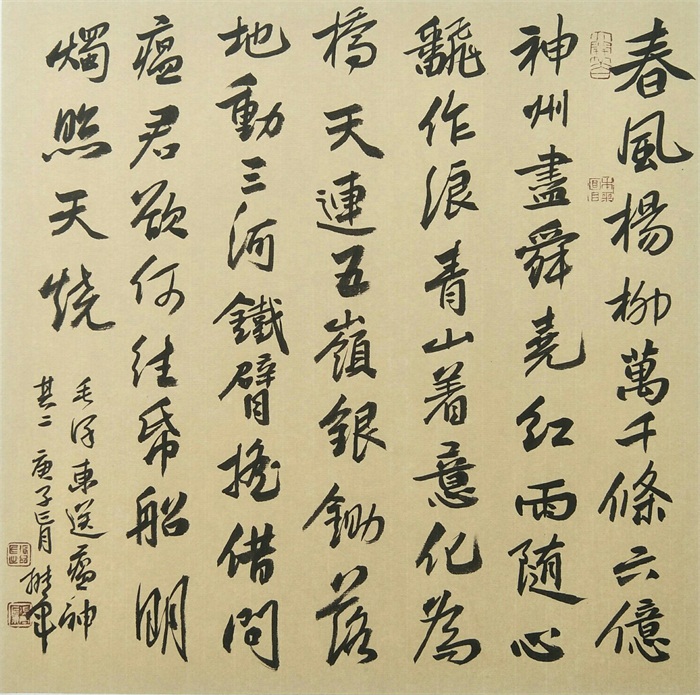 春風楊柳萬千條六億
神州盡舜堯紅雨隨心
飜作浪青山着意化為
橋天連五嶺銀鋤落
地動三河鐵臂搖借問
瘟君欲何往帋船明
燭照天燒
毛澤東送瘟神
其二 庚子